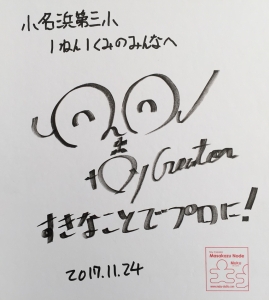 小名浜第三小
1ねん1くみのみんなへ
Toy Creator
すきなことでプロに!
2017.11.24
Masakazu Node